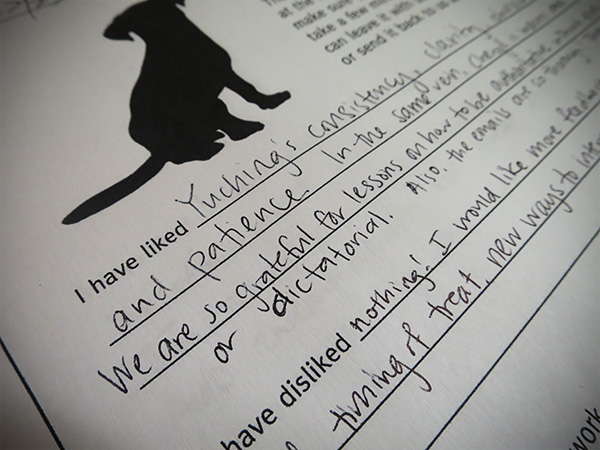 at the
make sure
take a few min
can leave it with
or send it back to us
I have liked Yuching's consistency, clarity,
and patience. In the same vein, Cheryl's
We are so grateful for lessons on how to be authoritative, without
or dictatorial. Also, the emails are so
have disliked nothing! I would like more feedback
timing of treat, new ways to inter
work